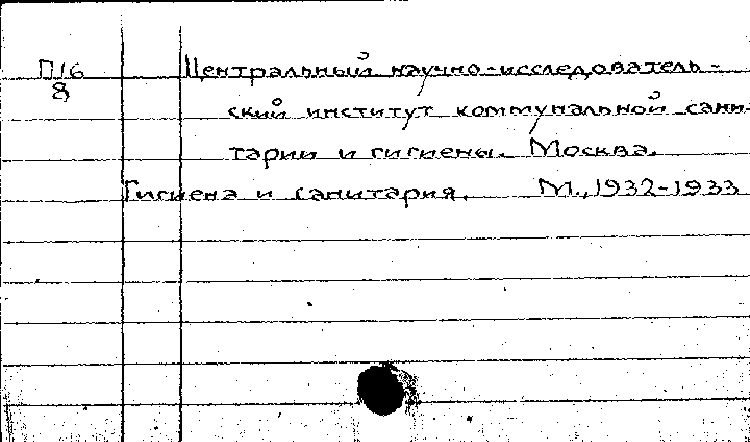 П16 Центральный научно-исследователь-
8 ский институт коммунальной сани-
тарии и гигиены. Москва.
Гигиена и санитария. М., 1932-1933